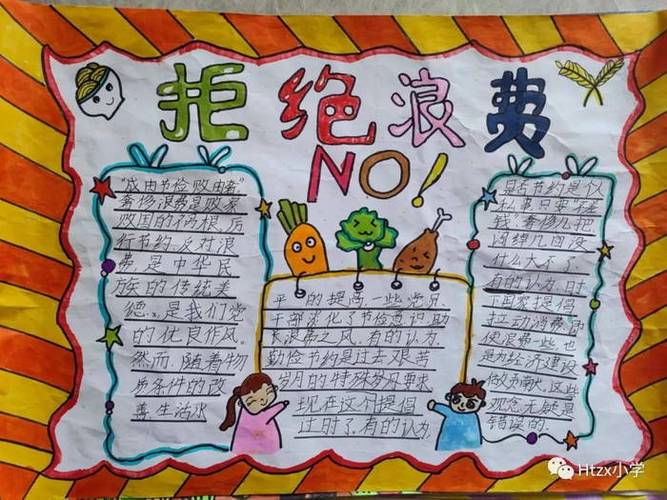 拒绝浪费
NO!
“成由节俭败由奢”
奢侈浪费是败家
败国的祸根，厉
行节约反对浪
费是中华民
万族的传统美
德，是我们党
的优良作风。
然而，随着物
质条件的改
善，生活水
平的提高，一些党员
干部淡化了节俭意识，助
长浪费之风，有的认为
勤俭节约是过去艰苦
岁月的特殊
现在这个提倡
过时了，有的认为，
是否节约是个
私事，只要“不差
钱”奢侈儿把
浪费几回没
什么大不了，
有的认为，时
下国家提倡
拉动消费，即
使浪费一些，也
是为经济建设
做贡献，这些
观念无疑是
错误的。
Htzx小学